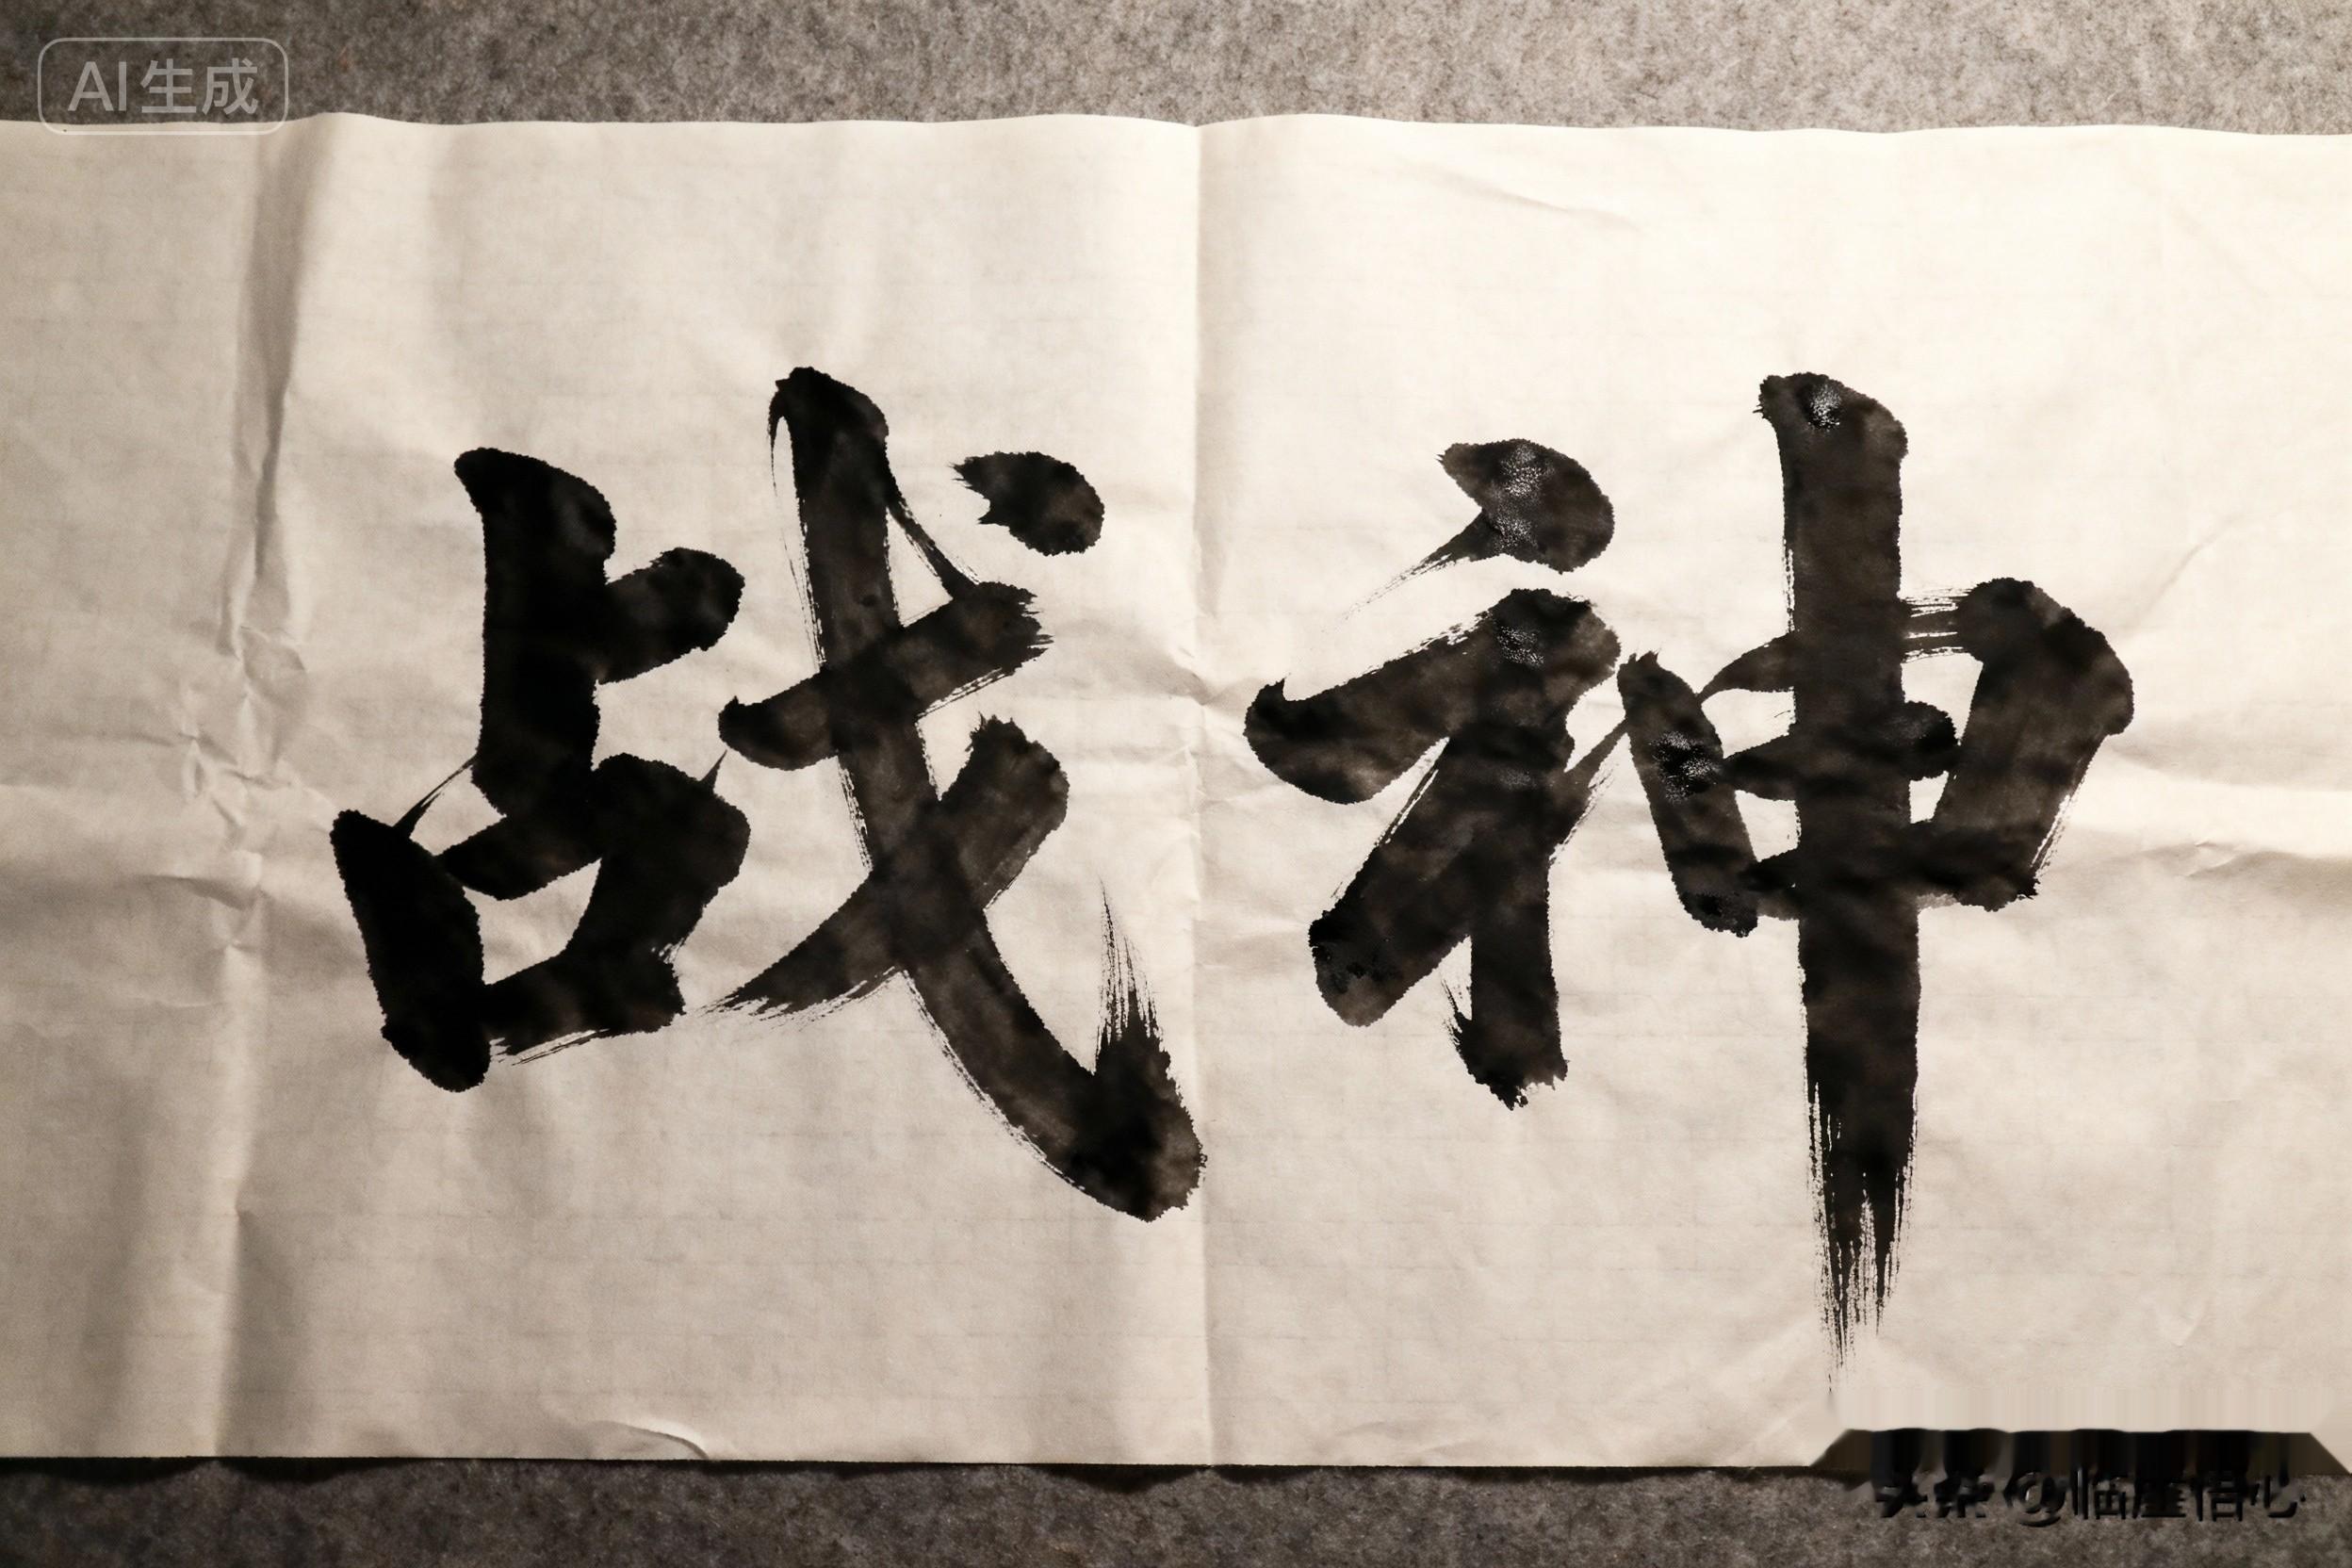 AI生成
战神
头条 @临座悟心